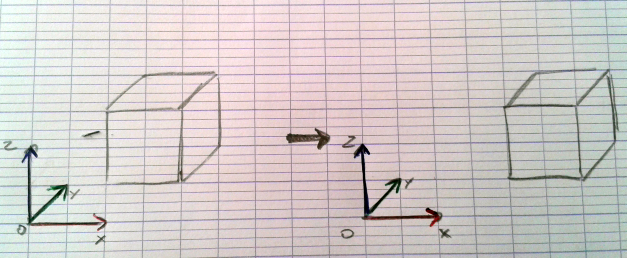 Z
Y
O
X
Z
Y
O
X